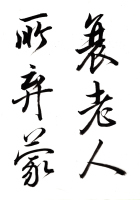 衰老人
所弃蒙